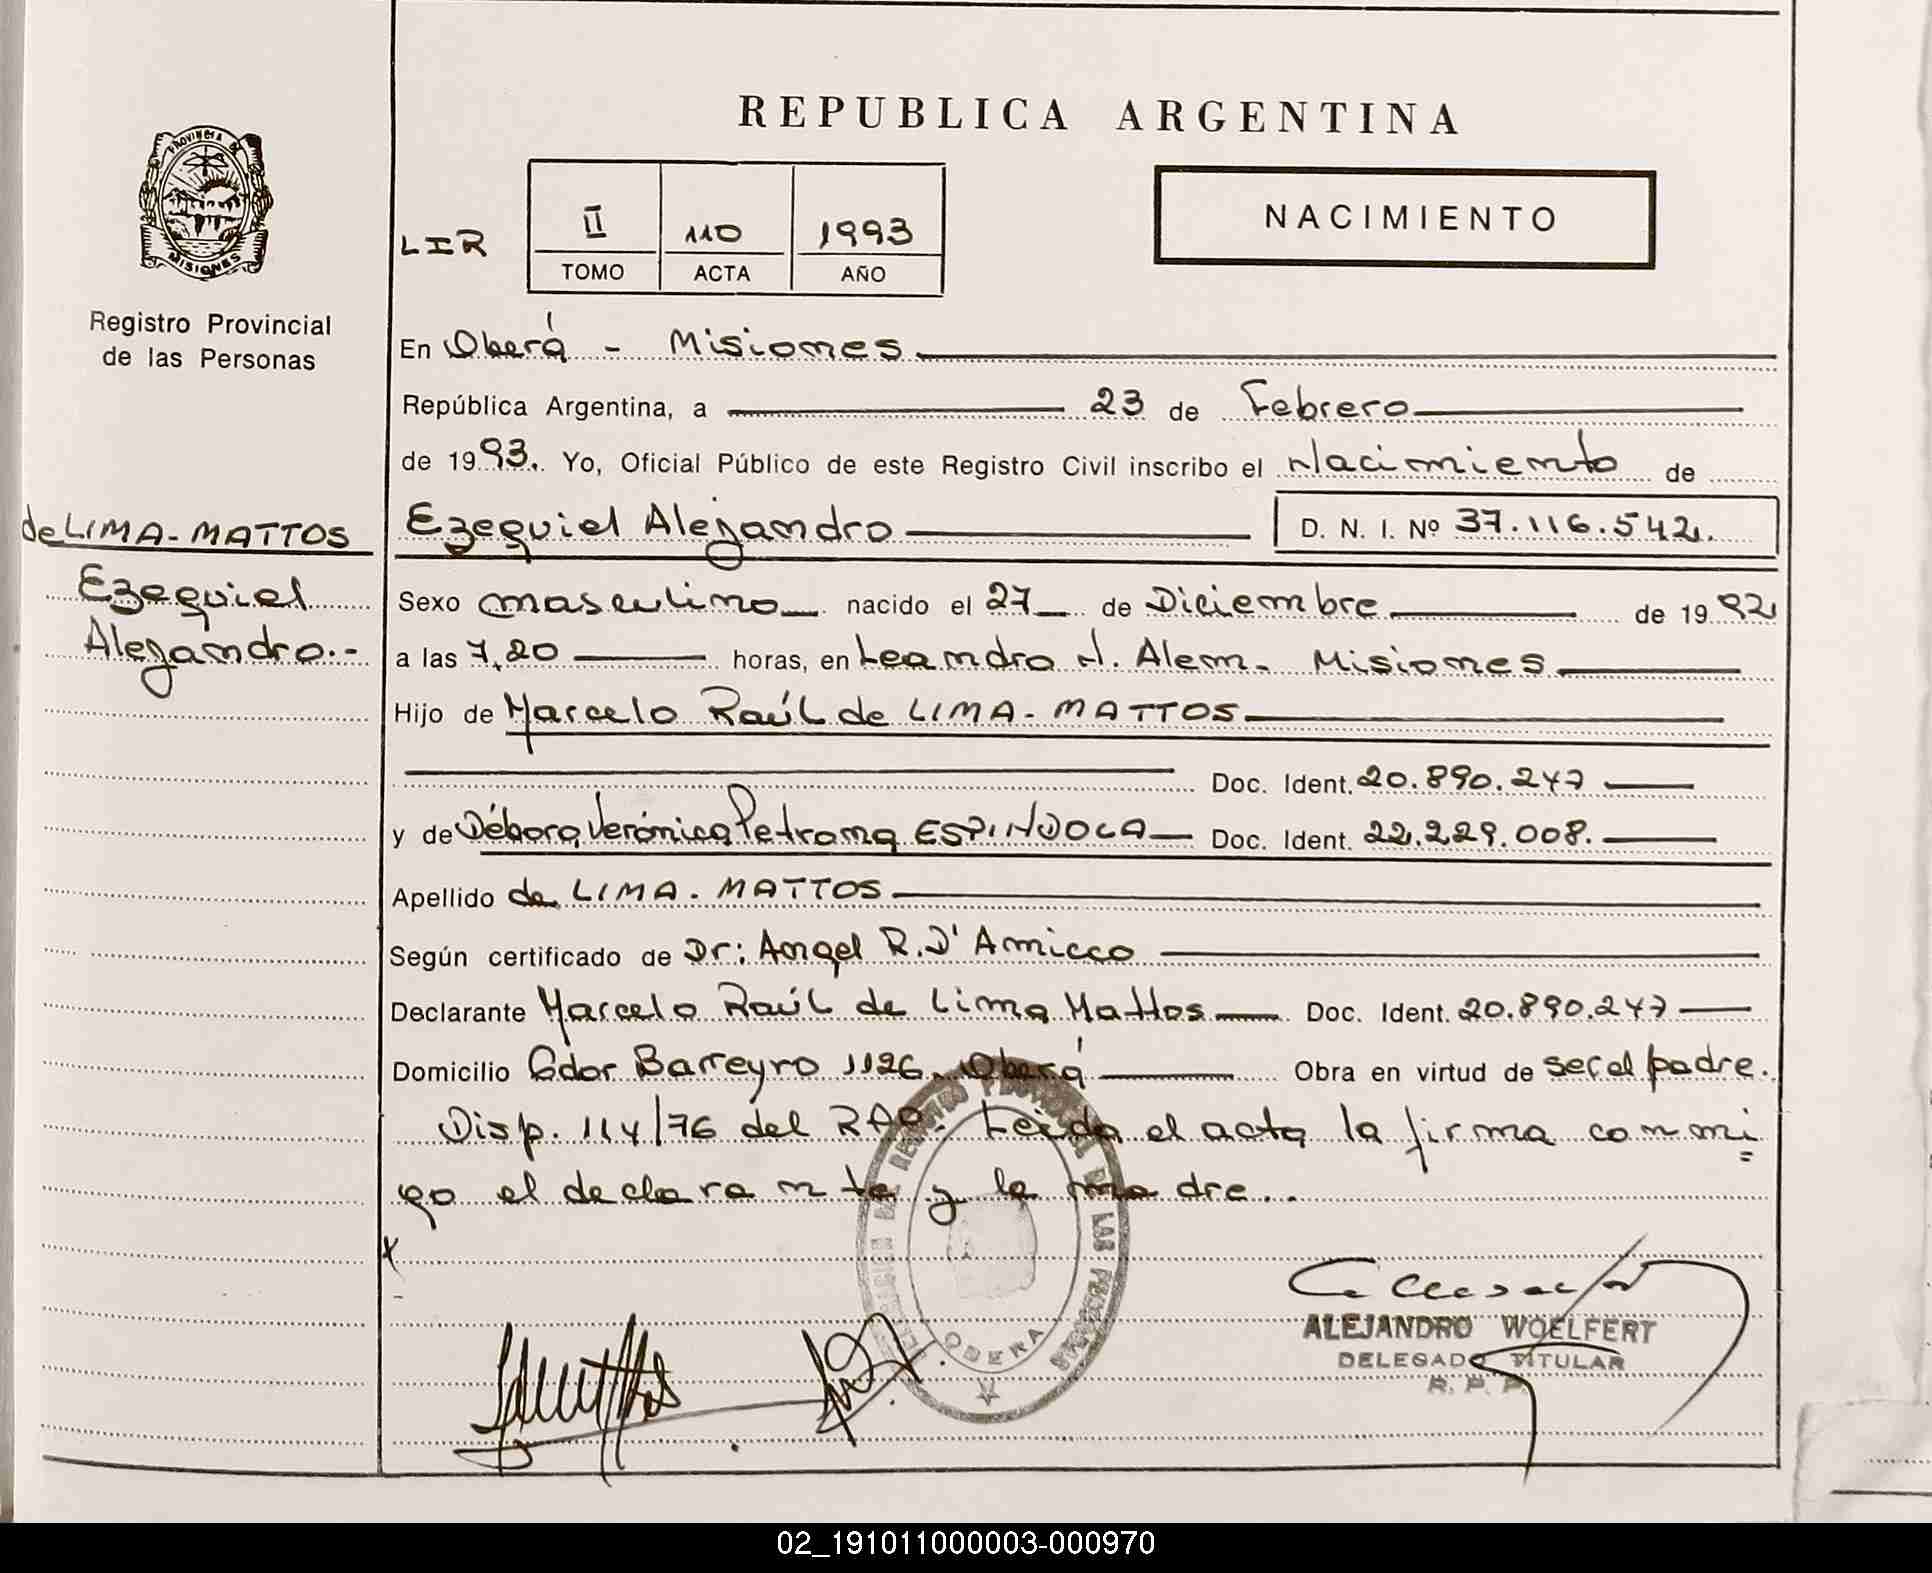 REPUBLICA ARGENTINA
PROVINCIA DE MISIONES
Registro Provincial
de las Personas
LIR
II 110 1993
TOMO ACTA AÑO
NACIMIENTO
En Oberá - Misiones
República Argentina, a 23 de Febrero
de 1993. Yo, Oficial Público de este Registro Civil inscribo el Nacimiento de
de LIMA-MATTOS
Ezequiel
Alejandro.-
Ezequiel Alejandro D. N. I. Nº 37.116.542.
Sexo masculino nacido el 27 de Diciembre de 1992
a las 7,20 horas, en Leandro N. Alem- Misiones
Hijo de Marcelo Raúl de LIMA-MATTOS
Doc. Ident. 20.890.247
y de Débora Verónica Petrona ESPINDOLA Doc. Ident. 22.229.008.
Apellido de LIMA-MATTOS
Según certificado de Dr: Angel R. D'Amicco
Declarante Marcelo Raúl de Lima Mattos Doc. Ident. 20.890.247
Domicilio Gdor Barreyro 1126. Oberá Obra en virtud de ser el padre.
Disp. 114/76 del RPP. Leída el acta la firma conmi=
go el declarante y la madre..
DEL REGISTRO PROVINCIAL DE LAS PERSONAS
OBERA
ALEJANDRO WOELFERT
DELEGADO TITULAR
R. P. P.
02_191011000003-000970